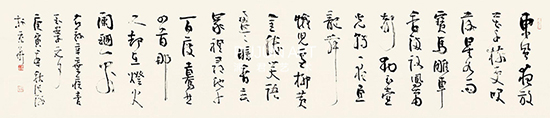 東風夜放
花千樹更吹
落星如雨
寶馬雕車
香滿路鳳簫
聲動玉壺
光轉一夜魚
龍舞
蛾兒雪柳黃
金縷笑語
盈盈暗香去
眾裡尋他千
百度驀然
回首那
人却在燈火
闌珊處
玉案元夕
庚寅